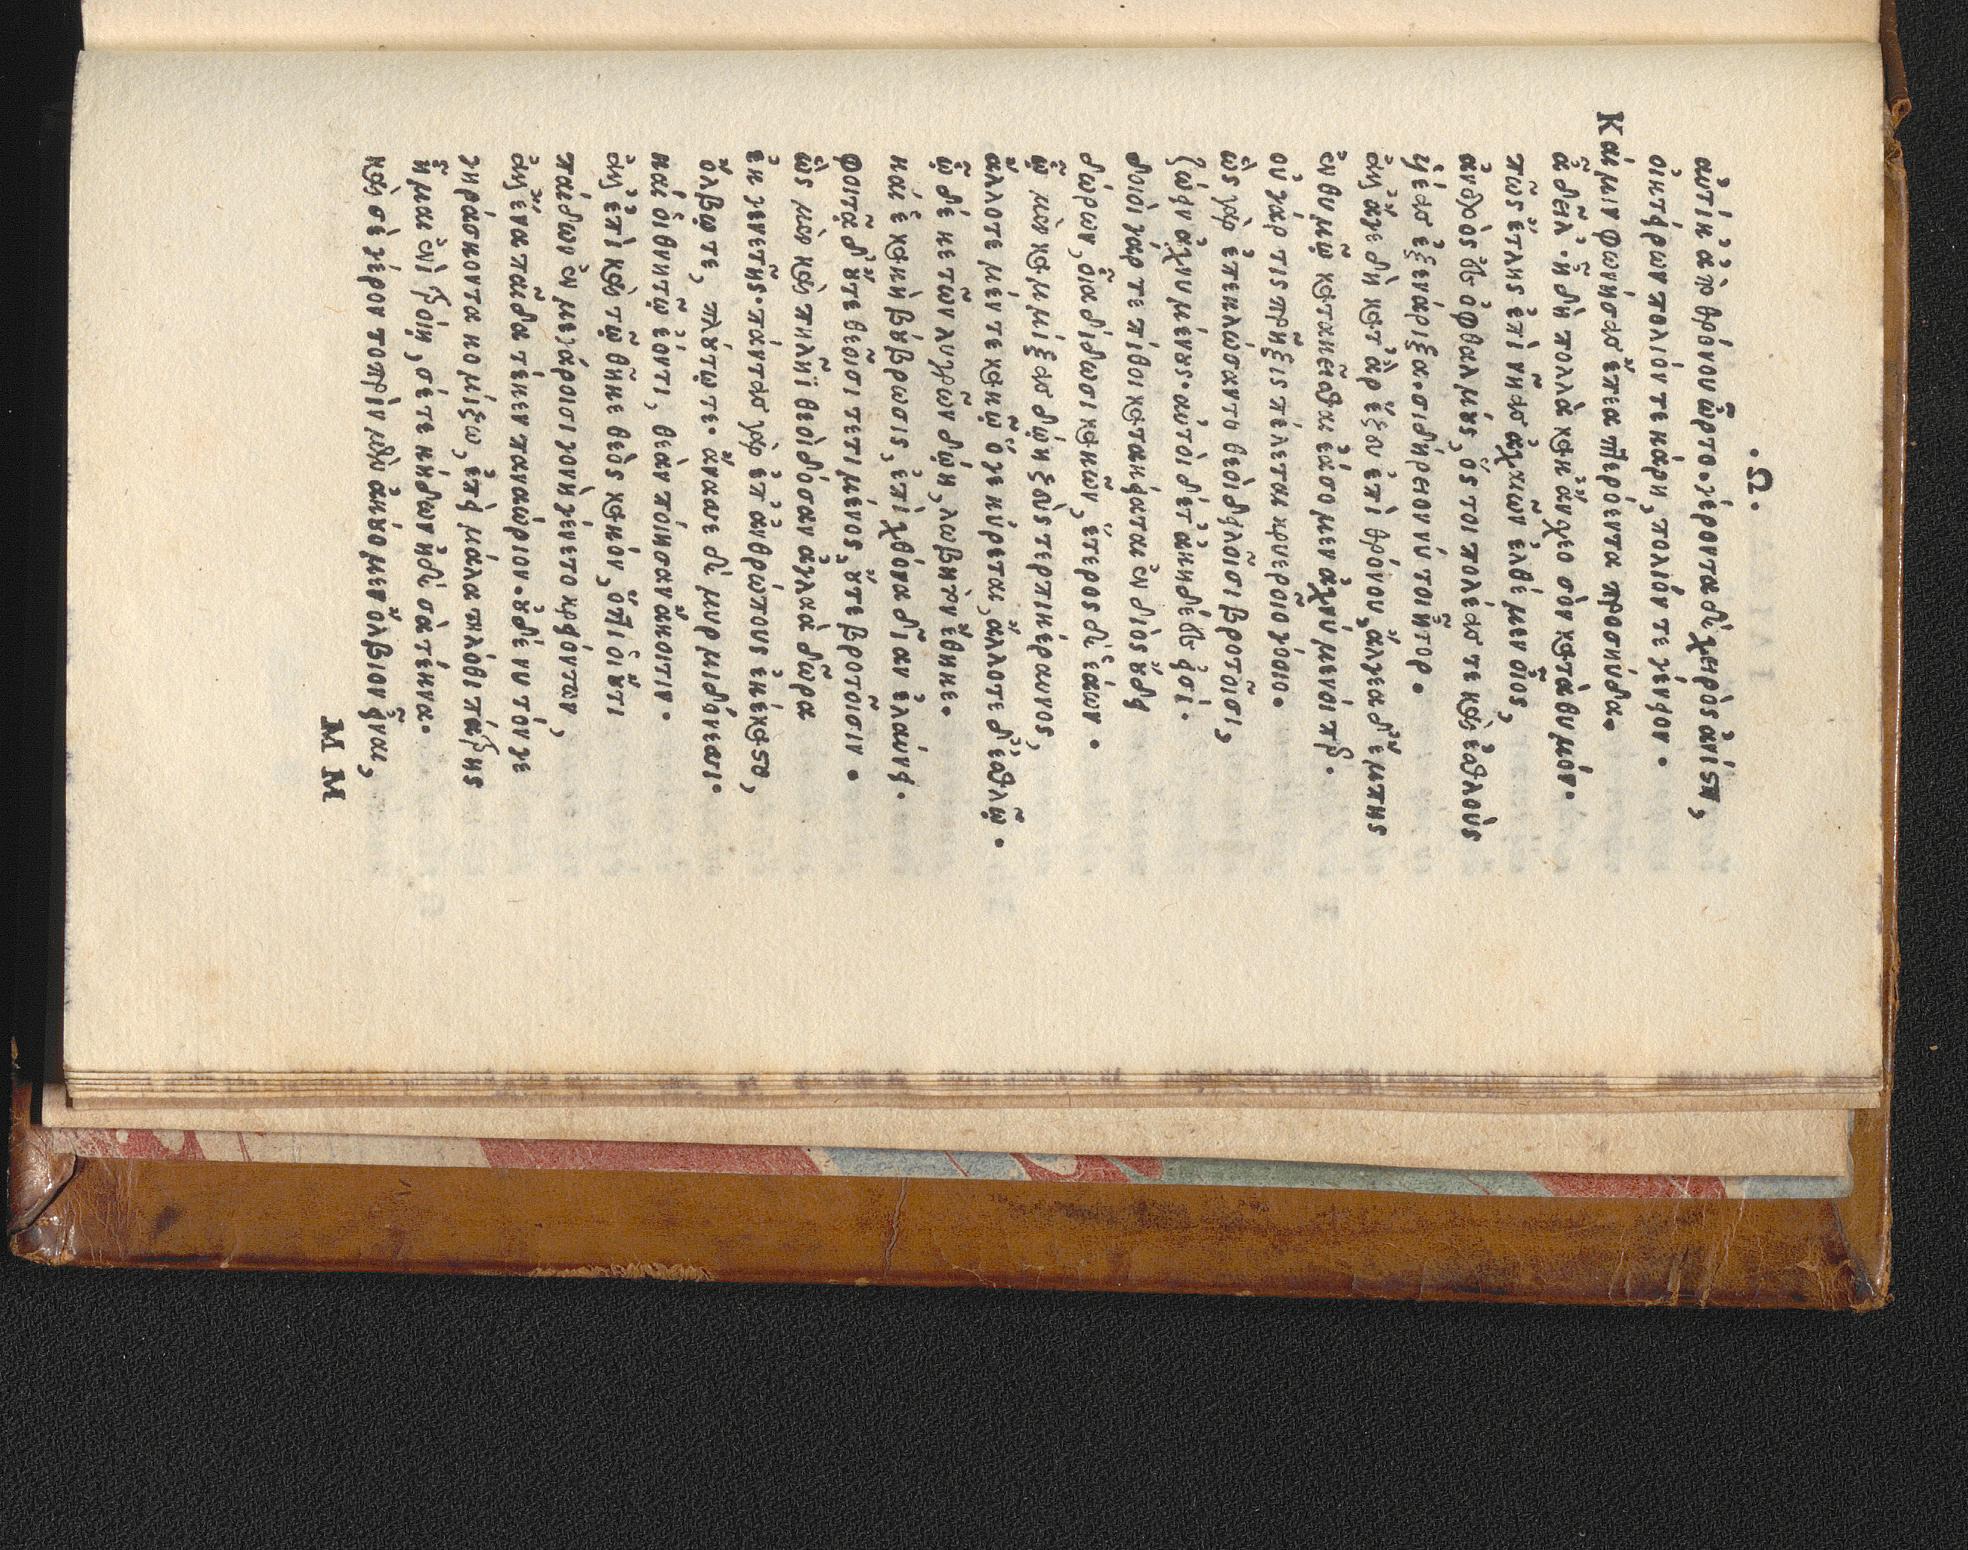 .Ω.
αὐτίκ' ἀπὸ θρόνου ὦρτο. γέροντα δὲ χειρὸς ἀνίστη,
οἰκτείρων πολιόν τε κάρη, πολιόν τε γένειον.
Καί μιν φωνήσας ἔπεα πτερόεντα προσηύδα.
ἆ δείλ'. ἦ δὴ πολλὰ κακ' ἄνχεο σὸν κατὰ θυμόν.
πῶς ἔτλης ἐπὶ νῆας ἀχαιῶν ἐλθέμεν οἶος,
ἀνδρὸς ἐς ὀφθαλμούς, ὅς τοι πολέας τε καὶ ἐσθλοὺς
υἱέας ἐξενάριξα. σιδήρειον νύ τοι ἦτορ.
ἀλλ' ἄγε δὴ κατ' ἂρ ἕζευ ἐπὶ θρόνου, ἄλγεα δ' ἔμπης
ἐν θυμῷ κατακεῖσθαι ἐάσομεν ἀχνύμενοί περ.
οὐ γάρ τις πρῆξις πέλεται κρυεροῖο γόοιο.
ὣς γὰρ ἐπεκλώσαντο θεοὶ δειλοῖσι βροτοῖσι,
ζώειν ἀχνυμένους. αὐτοὶ δέ τ' ἀκηδέες εἰσί.
δοιοὶ γάρ τε πίθοι κατακείαται ἐν διὸς οὔδει
δώρων, οἷα δίδωσι κακῶν, ἕτερος δὲ ἐάων.
ᾧ μὲν καμμίξας δώῃ ζεὺς τερπικέραυνος,
ἄλλοτε μέν τε κακῷ ὅγε κύρεται, ἄλλοτε δ' ἐσθλῷ.
ᾧ δέ κε τῶν λυγρῶν δώῃ, λωβητὸν ἔθηκε.
καί ἑ κακὴ βούβρωσις, ἐπὶ χθόνα δῖαν ἐλαύνει.
φοιτᾷ δ' οὔτε θεοῖσι τετιμένος, οὔτε βροτοῖσιν.
ὣς μὲν καὶ πηλῆϊ θεοὶ δόσαν ἀγλαὰ δῶρα
ἐκ γενετῆς. πάντας γὰρ ἐπ' ἀνθρώπους ἐκέκαστο,
ὄλβῳ τε, πλούτῳ τε. ἄνασσε δὲ μυρμιδόνεσσι.
καί οἱ θνητῷ ἐόντι, θεὰν ποίησαν ἄκοιτιν.
ἀλλ' ἐπὶ καὶ τῷ θῆκε θεὸς κακόν, ὅττί οἱ οὔτι
παίδων ἐν μεγάροισι γονὴ γένετο κρειόντων,
ἀλλ' ἕνα παῖδα τέκεν παναώριον. οὐδέ νυ τόν γε
γηράσκοντα κομίζω, ἐπεὶ μάλα τηλόθι πάτρης
ἧμαι ἐνὶ τροίῃ, σέ τε κήδων ἠδὲ σὰ τέκνα.
καὶ σὲ γέρον τοπρὶν μὲν ἀκούομεν ὄλβιον εἶναι,
M M